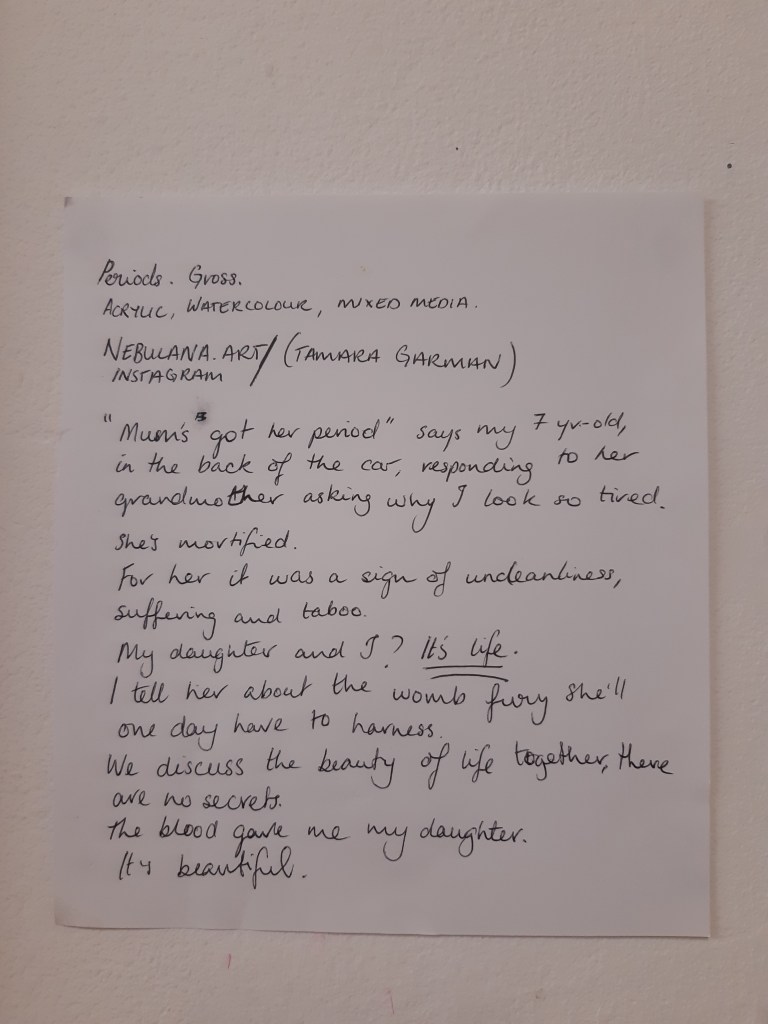 Periods. Gross.
ACRYLIC, WATERCOLOUR, MIXED MEDIA.
NEBULANA.ART/ (TAMARA GARMAN)
INSTAGRAM
"Mum's got her period" says my 7 yr-old,
in the back of the car, responding to her
grandmother asking why I look so tired.
She's mortified.
For her it was a sign of uncleanliness,
suffering and taboo.
My daughter and I? It's life.
I tell her about the womb fury she'll
one day have to harness.
We discuss the beauty of life together, there
are no secrets.
The blood gave me my daughter.
It's beautiful.